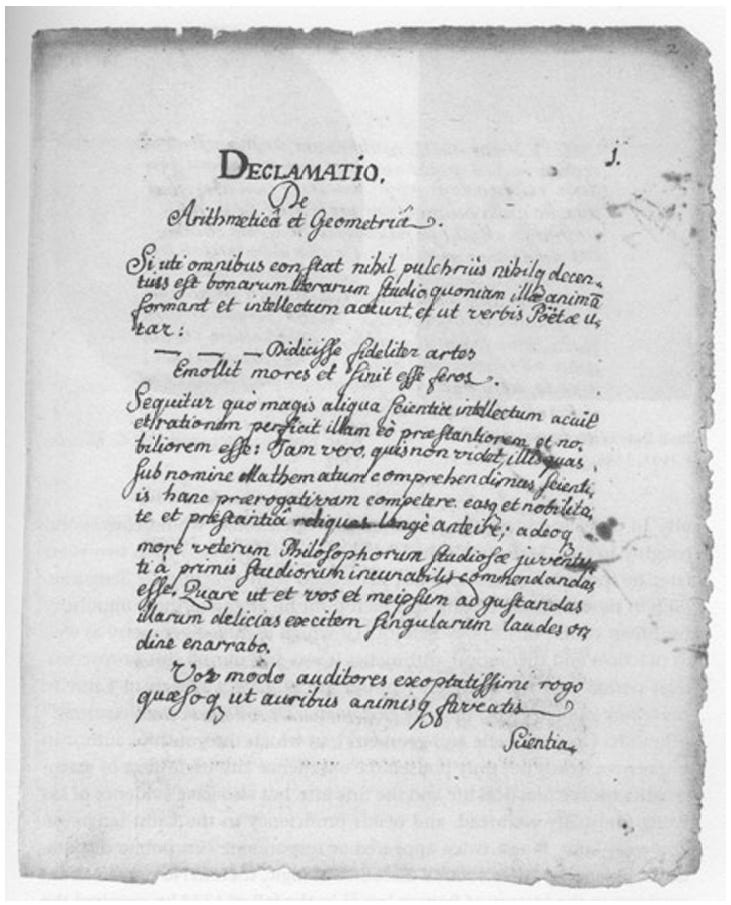 2
1.
DECLAMATIO.
De
Arithmeticâ et Geometriâ.
Si, uti omnibus constat nihil pulchriùs nihilq decen-
tius est bonarum literarum studio, quoniam illæ animū
formant et intellectum acuunt, et ut verbis Poëtæ u-
tar:
— — — Didicisse fideliter artes
Emollit mores et sinit esse feros.
Sequitur quò magis aliqua scientia intellectum acuit
et rationem perficit illam eò præstantiorem et no-
biliorem esse: Jam vero, quis non videt, illis quas
sub nomine Mathematum comprehendimus scienti-
is hanc prærogativam competere. easq et nobilita-
te et præstantiâ reliquas longè anteire; adeoq
more veterum Philosophorum studiosæ juventu-
ti à primis studiorum incunabilis commendandas
esse. Quare ut et vos et meipsum ad gustandas
illarum delicias excitem singularum laudes or
dine enarrabo.
Vos modo auditores exoptatissimi rogo
quæsoq ut auribus animisq faveatis
Scientia,